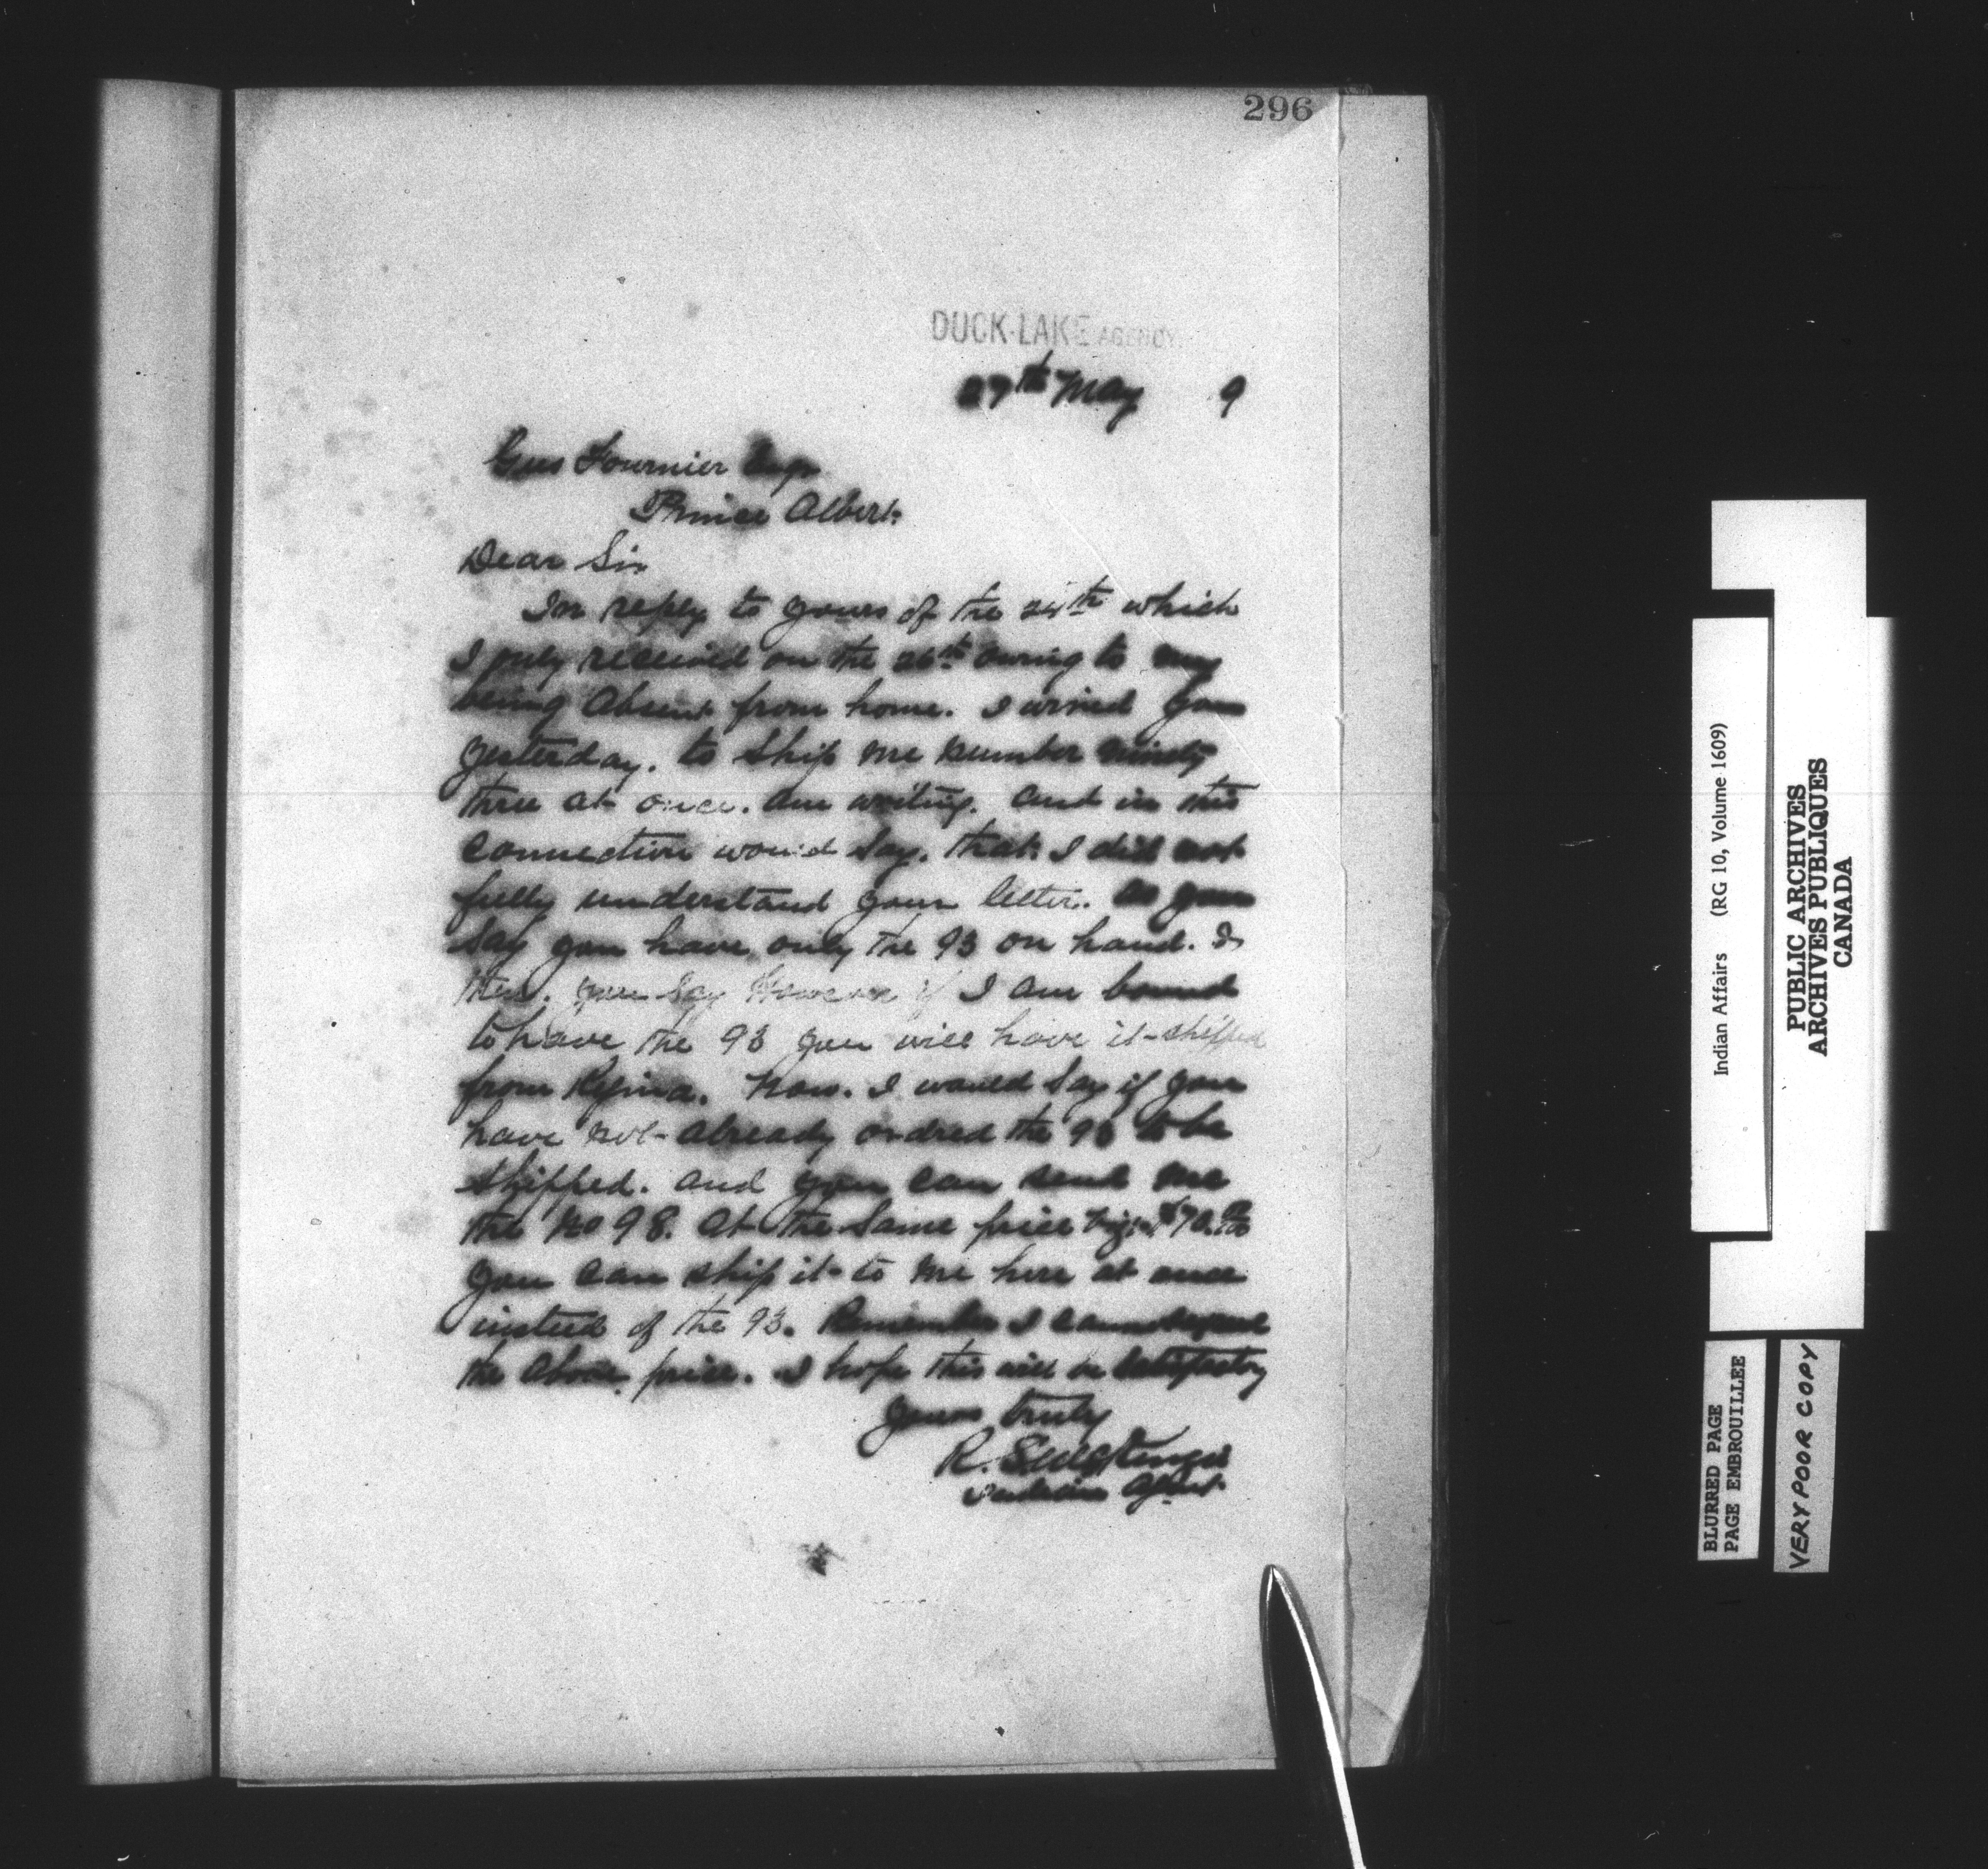 296
DUCK-LAKE AGENCY.
27th May 9
Gus Fournier Esqr
Prince Albert.
Dear Sir
In reply to yours of the 24th which
I only received on the 26th owing to my
being absent from home. I wired you
yesterday. to ship me number ninety
three at once. am writing. and in this
connection would say. that I did not
fully understand your letter. as you
say you have only the 93 on hand. &
then. you say However if I am bound
to have the 93 you will have it shipped
from Regina. Now. I would say if you
have not already ordred the 93 to be
shipped. and you can send me
the No 98. at the same price viz: $70.00
you can ship it to me here at once
instead of the 93. Remember I cannot exceed
the above price. I hope this will be satisfactory
yours truly
R. S.
Indian Agent.
Indian Affairs (RG 10, Volume 1609)
PUBLIC ARCHIVES
ARCHIVES PUBLIQUES
CANADA
BLURRED PAGE
PAGE EMBROUILLEE
VERY POOR COPY